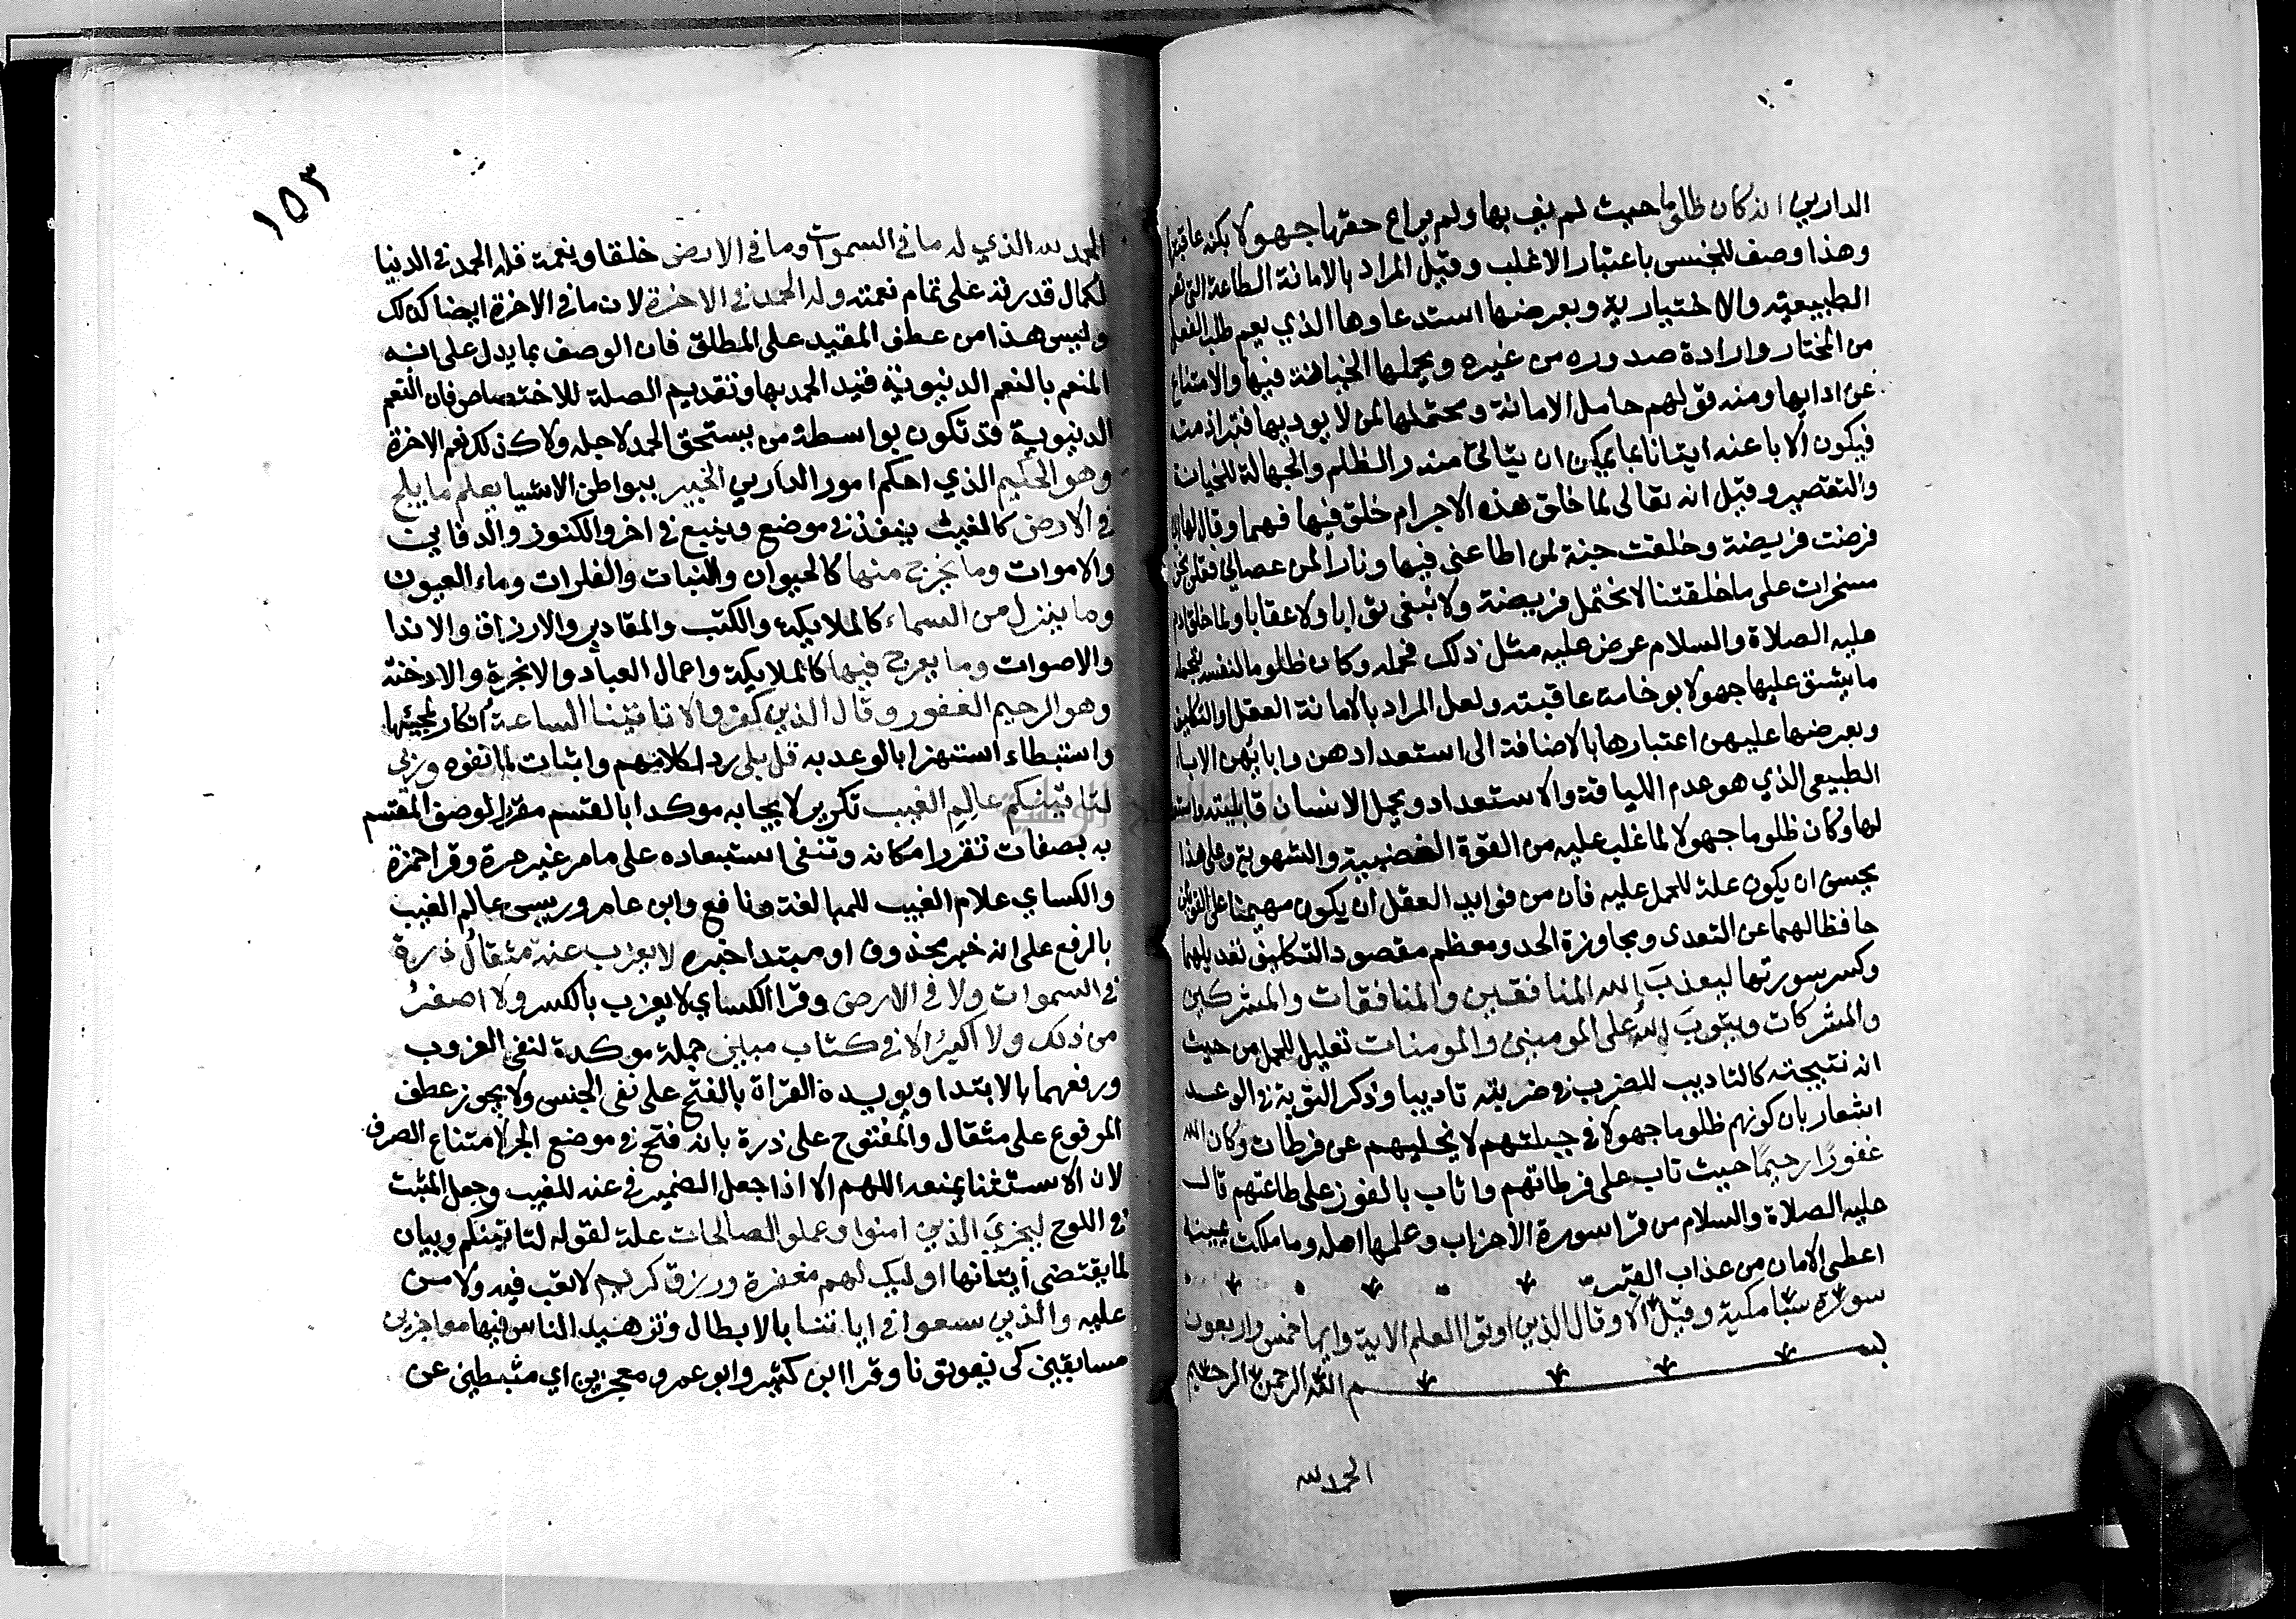 الدارين انه كان ظلوما حيث لم يف بها ولم يراع حقها جهولا بكنه عاقبتها
وهذا وصف للجنس باعتبار الاغلب وقيل المراد بالامانة الطاعة التي تعم
الطبيعية والاختيارية وبعرضها استدعاوها الذي يعم طلب الفعل
من المختار وارادة صدوره من غيره وبحملها الخيانة فيها والامتناع
عن ادايها ومنه قولهم حامل الامانة ومحتملها لمن لا يوديها فتبرا ذمته
فيكون الابا عنه ايتانا بما يمكن ان يتاتى منه والظلم والجهالة للخيانة
والتقصير وقيل انه تعالى لما خلق هذه الاجرام خلق فيها فهما وقال لها اني
فرضت فريضة وخلقت جنة لمن اطاعني فيها ونارا لمن عصاني فقلن نحن
مسخرات على ما خلقتنا لا نحتمل فريضة ولا نبغي ثوابا ولا عقابا ولما خلق ادم
عليه الصلاة والسلام عرض عليه مثل ذلك فحمله وكان ظلوما لنفسه بتحمله
ما يشق عليها جهولا بوخامة عاقبته ولعل المراد بالامانة العقل او التكليف
وبعرضها عليهن اعتبارها بالاضافة الى استعدادهن وبابائهن الابا
الطبيعي الذي هو عدم اللياقة والاستعداد وبحمل الانسان قابليته واستعداده
لها وكان ظلوما جهولا لما غلب عليه من القوة الغضبية والشهوية وعلى هذا
يحسن ان يكون علة للحمل عليه فان من فوايد العقل ان يكون مهيمنا على القوتين
حافظا لهما عن التعدى ومجاوزة الحد ومعظم مقصود التكليف تعديلهما
وكسر سورتها ليعذب الله المنافقين والمنافقات والمشركين
والمشركات ويتوب الله على المومنين والمومنات تعليل للحمل من حيث
انه نتيجته كالتاديب للضرب في ضربته تاديبا وذكر التوبة في الوعد
اشعار بان كونهم ظلوما جهولا في جبلتهم لا يخليهم عن فرطات وكان الله
غفورا رحيما حيث تاب على فرطاتهم واثاب بالفوز على طاعتهم قال
عليه الصلاة والسلام من قرا سورة الاحزاب وعلمها اهله وما ملكت يمينه
اعطى الامان من عذاب القبر
سورة سبا مكية وقيل الا وقال الذين اوتوا العلم الاية وايها خمس واربعون
بسم الله الرحمن الرحيم
الحمد لله
١٥٣
الحمد لله الذي له ما في السموات وما في الارض خلقا ونعمة فله الحمد في الدنيا
لكمال قدرته على تمام نعمته وله الحمد في الاخرة لان ما في الاخرة ايضا كذلك
وليس هذا من عطف المقيد على المطلق فان الوصف بما يدل على انه
المنعم بالنعم الدنيوية قيد الحمد بها وتقديم الصلة للاختصاص فان النعم
الدنيوية قد تكون بواسطة من يستحق الحمد لاجله ولا كذلك نعم الاخرة
وهو الحكيم الذي احكم امور الدارين الخبير ببواطن الاشيا يعلم ما يلج
في الارض كالغيث ينفذ في موضع وينبع في اخر والكنوز والدفاين
والاموات وما يخرج منها كالحيوان والنبات والفلزات وماء العيون
وما ينزل من السماء كالملايكة والكتب والمقادير والارزاق والاندا
والاصوات وما يعرج فيها كالملايكة واعمال العباد والابخرة والادخنة
وهو الرحيم الغفور وقال الذين كفروا لا تاتينا الساعة انكار لمجيئها
واستبطاء استهزا بالوعد به قل بلى رد لكلامهم واثبات لما نفوه وربي
لتاتينكم عالم الغيب تكرير لايجابه موكدا بالقسم مقررا لوصف المقسم
به بصفات تقرر امكانه وتنفى استبعاده على ما مر غير مرة وقرا حمزة
والكساي علام الغيب للمبالغة ونافع وابن عامر ورويس عالم الغيب
بالرفع على انه خبر محذوف او مبتدا خبره لا يعزب عنه مثقال ذرة
في السموات ولا في الارض وقرا الكساي لا يعزب بالكسر ولا اصغر
من ذلك ولا اكبر الا في كتاب مبين جملة موكدة لنفى العزوب
ورفعهما بالابتدا ويويده القراة بالفتح على نفى الجنس ولا يجوز عطف
المرفوع على مثقال والمفتوح على ذرة بانه فتح في موضع الجر لامتناع الصرف
لان الاستثنا يمنعه اللهم الا اذا جعل الضمير في عنه للغيب وجعل المثبت
في اللوح ليجزي الذين امنوا وعملو الصالحات علة لقوله لتاتينكم وبيان
لما يقتضى أيتانها اوليك لهم مغفرة ورزق كريم لا تعب فيه ولا من
عليه والذين سعوا في اياتنا بالابطال وتزهيد الناس فيها معاجزين
مسابقين كى يفوتونا وقرا ابن كثير وابو عمرو معجزين اي مثبطين عن